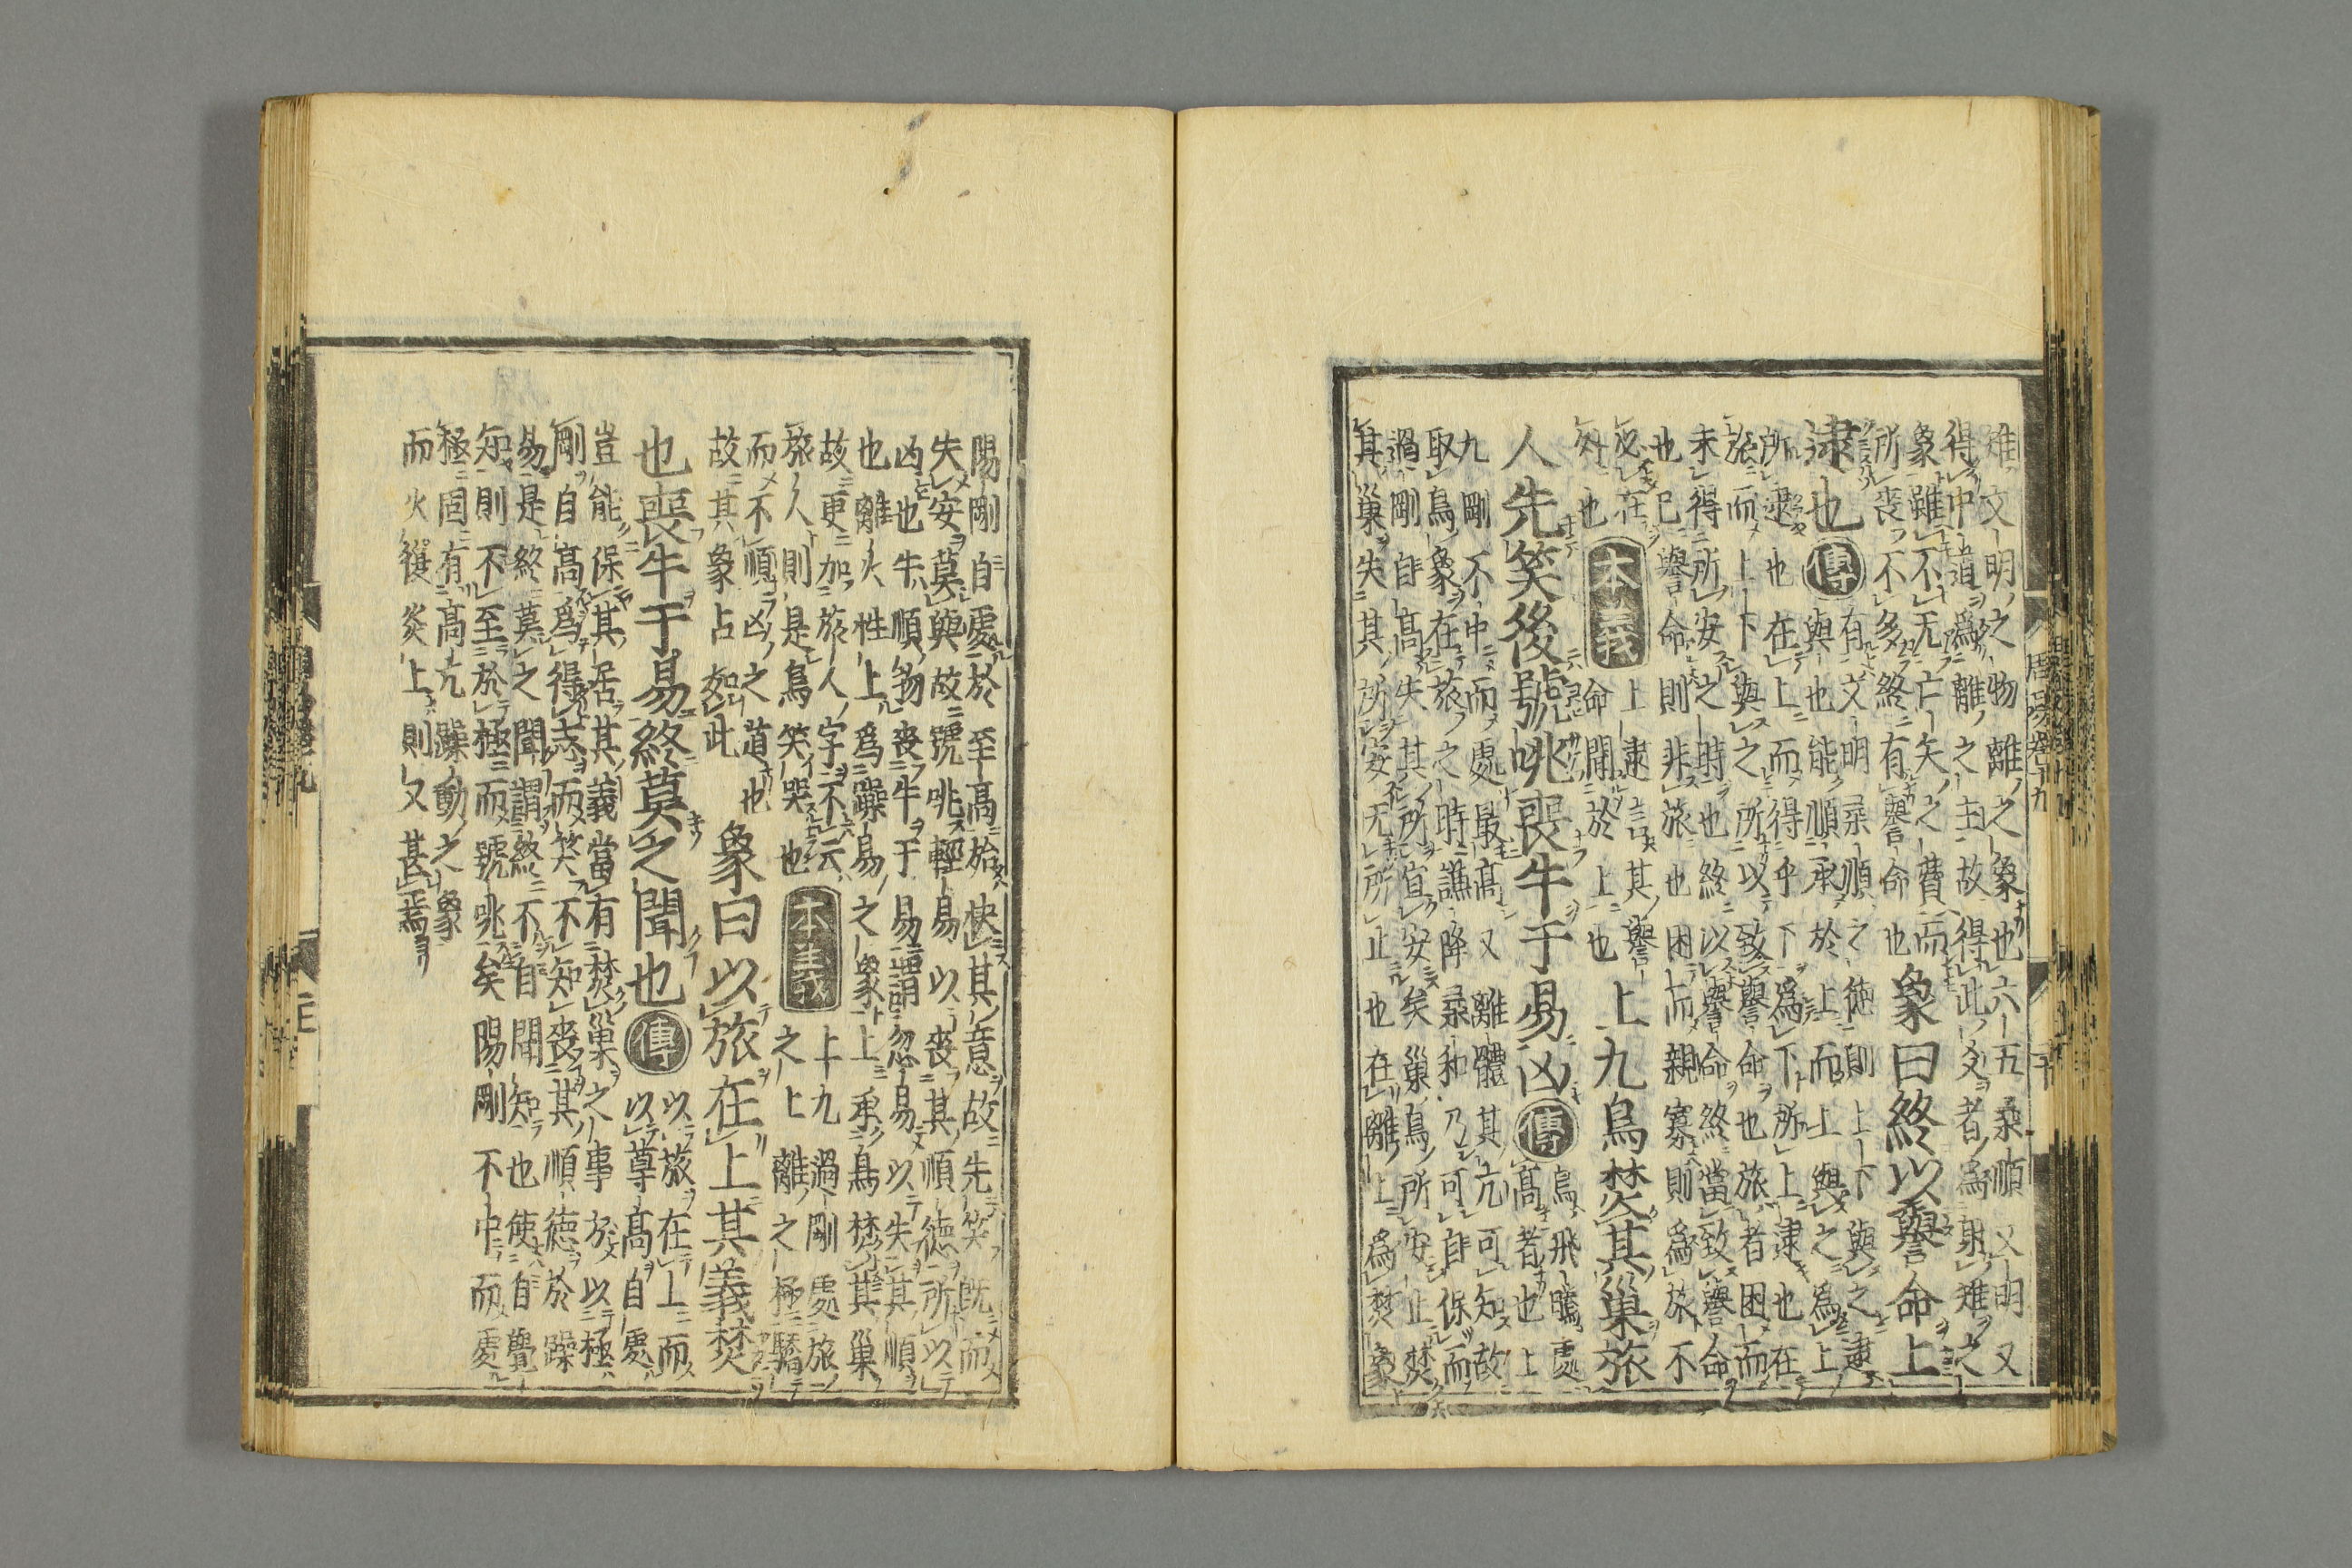 雉文明之物離之象也六五柔順又明又
得中道爲離之主故得此爻者爲射雉之
象雖不无亡矢之費而
所喪不多終有譽命也
象曰終以譽命上
逮也
傳
有文明柔順之德則上下與之逮
與也能順承於上而上與之爲上
所逮也在上而得乎下爲下所上逮也在
旅而上下與之所以致譽命也旅者困而
未得所安之時也終以譽命終當致譽命
也巳譽命則非旅也困而親寡則爲旅不
必在
外也
本義
上逮言其譽
命聞於上也
上九鳥焚其巢旅
人先笑後號咷喪牛于易凶
傳
鳥飛騰處
高者也上
九剛不中而處最高又離體其亢可知故
取鳥象在旅之時謙降柔和乃可自保而
過剛自高失其所宜安矣巢鳥所安止焚
其巢失其所安无所止也在離上爲焚象
陽剛自處於至高始快其意故先笑既而
失安莫與故號咷輕易以喪其順德所以
凶也牛順物喪牛于易謂忽易以失其順
也離火性上爲躁易之象上承鳥焚其巢
故更加旅人字不云
旅人則是鳥笑哭也
本義
上九過剛處旅
之上離之極驕
而不順凶之道也
故其象占如此
象曰以旅在上其義焚
也喪牛于易終莫之聞也
傳
以旅在上而
以尊高自處
豈能保其居其義當有焚巢之事方以極
剛自高爲得志而笑不知喪其順德於躁
易是終莫之聞謂終不自聞知也使自覺
知則不至於極而號咷矣陽剛不中而處
極固有高亢躁動之象
而火復炎上則又甚焉